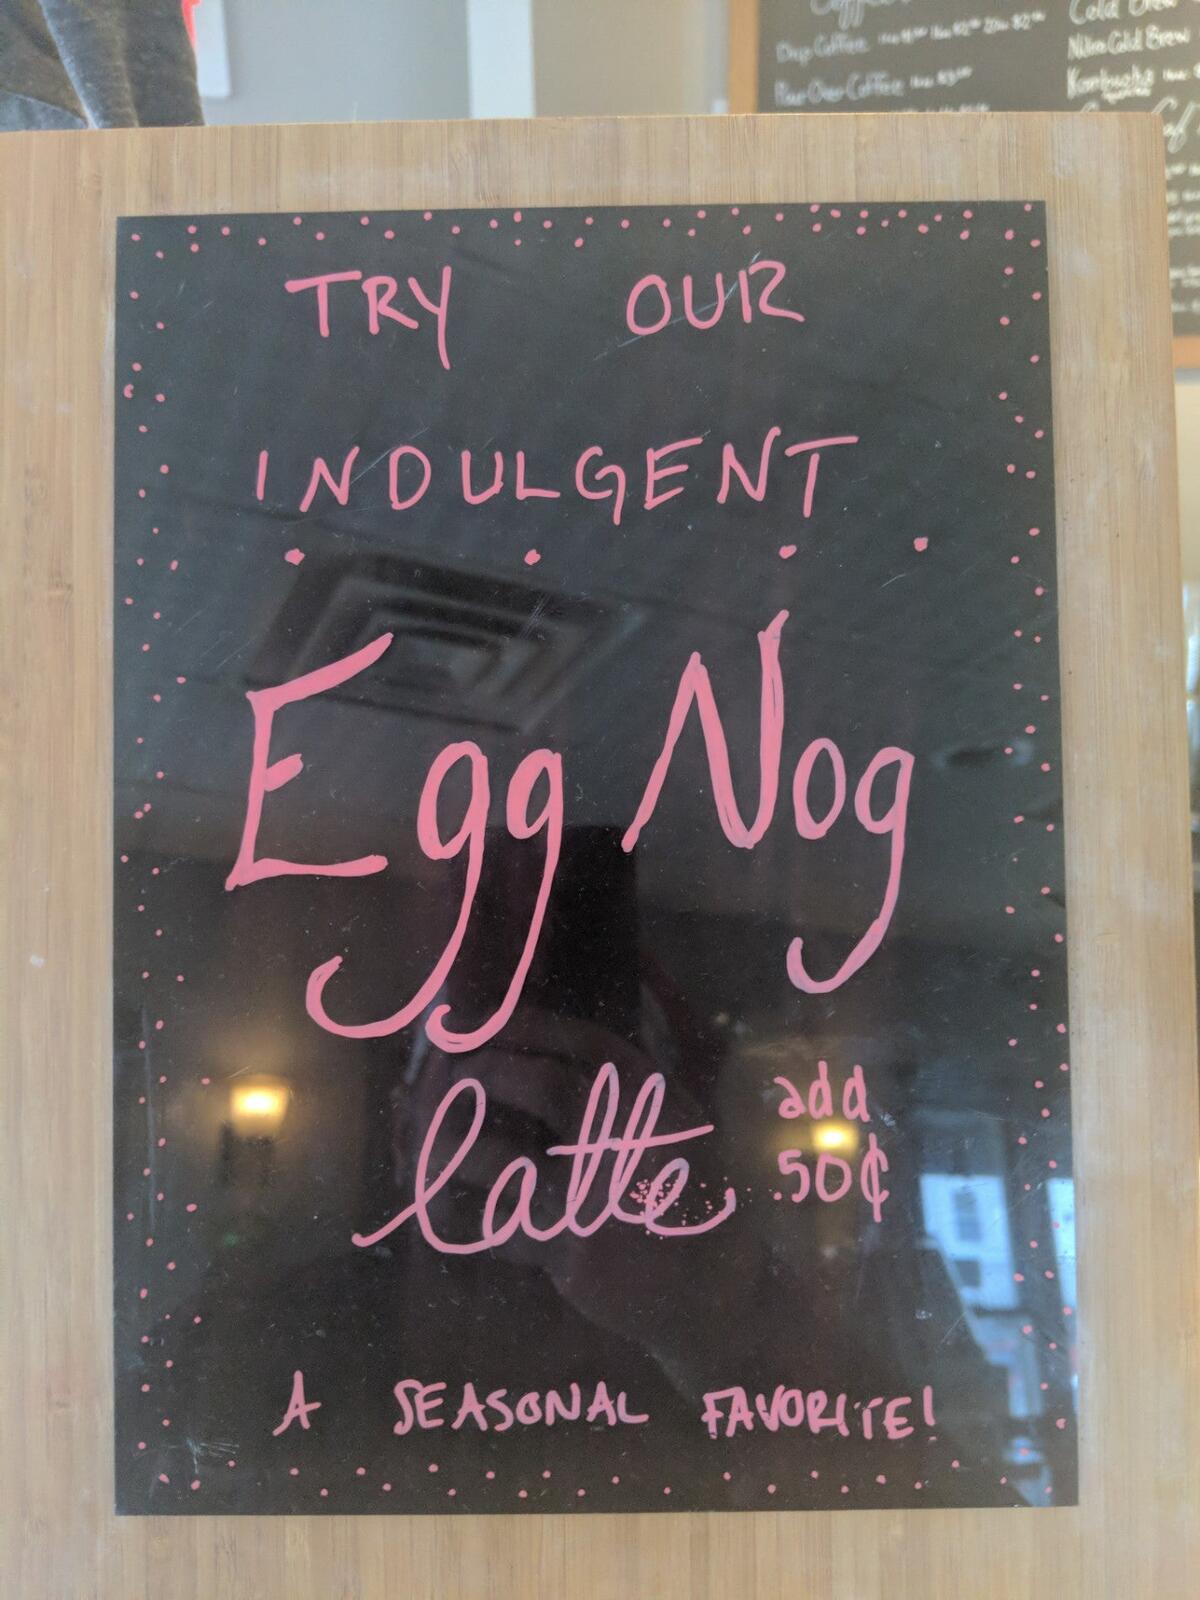 Drip Coffee
Pour Over Coffee
Cold Brew
Nitro Cold Brew
Kombucha
TRY OUR
INDULGENT
Egg Nog
latte
add
.50¢
A SEASONAL FAVORITE!